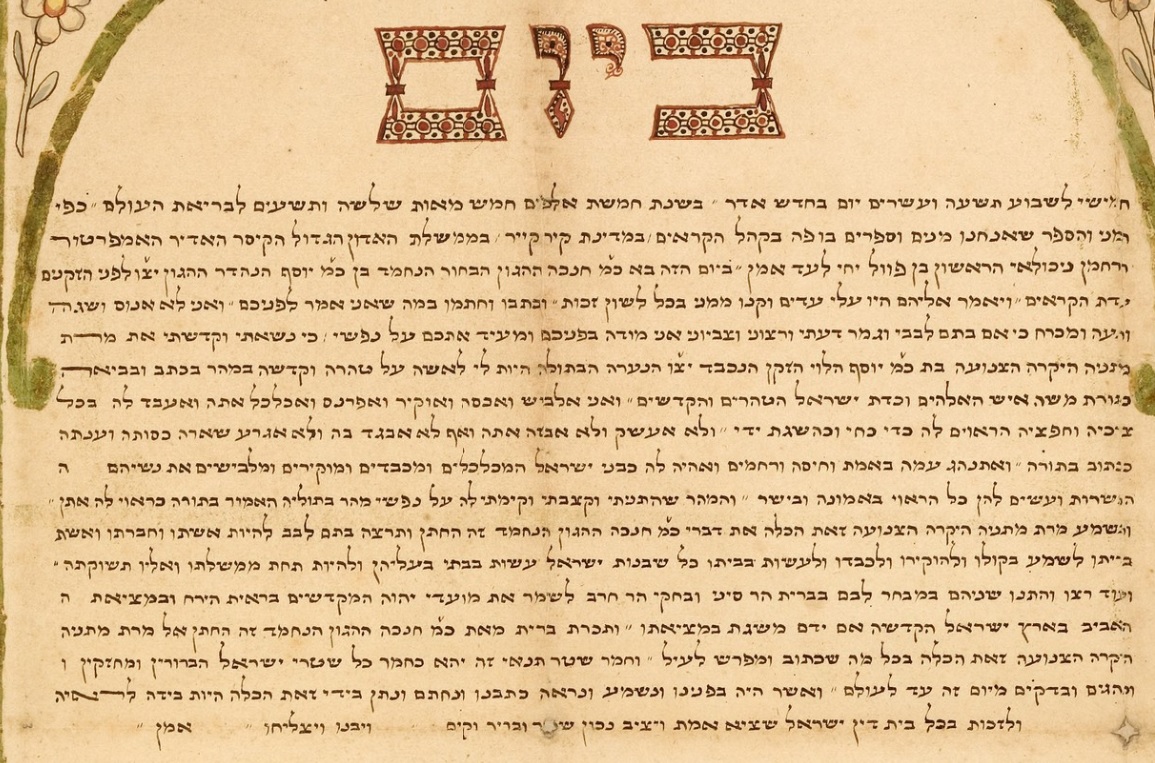 ביום
חמישי לשבוע תשעה ועשרים יום בחדש אדר " בשנת חמשת אלפים חמש מאות שלשה ותשעים לבריאת העולם " כפי
והספר שאנחנו מנים וספרים בו פה בקהל הקראים / במדינת קירקייר / בממשלת האדון הגדול הקיסר האדיר האמפרטור
ורחמן ניכולאי הראשון בן פוול יחי לעד אמן " ביום הזה בא כ״מ חנכה ההגון הבחור הנחמד בן כ״מ יוסף הנהדר ההגון יצ״ו לפני הזקנים
עדת הקראים " ויאמר אליהם היו עלי עדים וקנו ממני בכל לשון זכות " וכתבו וחתמו במה שאני אמר לפניכם " ואני לא אנוס ושגה
ומכרח כי אם בתם לבבי וגמר דעתי ורצוני וצביוני אני מודה בפניכם ומעיד אתכם על נפשי / כי נשאתי וקדשתי את מרת
מתניה היקרה הצנועה בת כ״מ יוסף הלוי הזקן הנכבד יצ״ו הנערה הבתולה היות לי לאשה על טהרה וקדשה במהר בכתב ובביאה
כתורת משה איש האלהים וכדת ישראל הטהרים והקדשים " ואני אלביש ואכסה ואוקיר ואפרנס ואכלכל אתה ואעבד לה בכל
צרכיה וחפציה הראוים לה כדי כחי וכהשגת ידי " ולא אעשק ולא אבזה אתה ואף לא אבגד בה ולא אגרע שארה כסותה וענתה
ככתוב בתורה " ואתנהג עמה באמת וחיסה ורחמים ואהיה לה כבני ישראל המכלכלים ומכבדים ומוקירים ומלבישים את נשיהם ה
הכשרות ועשים להן כל הראוי באמונה ובישר " והמהר שהתניתי וקצבתי וקימתי לה על נפשי מהר בתוליה האמור בתורה כראוי לה אתן "
ונשמע מרת מתניה היקרה הצנועה זאת הכלה את דברי כ״מ חנכה ההגון הנחמד זה החתן ותרצה בתם לבב להיות אשתו וחברתו ואשת
בריתו לשמע בקולו ולהוקירו ולכבדו ולעשות בביתו כל שבנות ישראל עשות בבתי בעליהן ולהיות תחת ממשלתו ואליו תשוקתה "
ועוד רצו והתנו שניהם במבחר לבם בברית הר סיני ובחקי הר חרב לשמר את מועדי יהוה המקדשים בראית הירח ובמציאת ה
האביב בארץ ישראל הקדשה אם ידם משגת במציאתו " ותכרת ברית מאת כ״מ חנכה ההגון הנחמד זה החתן אל מרת מתניה
היקרה הצנועה זאת הכלה בכל מה שכתוב ומפרש לעיל " וחמר שטר תנאי זה יהא כחמר כל שטרי ישראל הברורין ומחזקין ו
ונהגים ובדקים מיום זה עד לעולם " ואשר היה בפנינו ונשמע ונראה כתבנו ונחתם ונתן בידי זאת הכלה היות בידה לראיה
ולזכות בכל בית דין ישראל שציא אמת ויציב נכון שריר ובריר וקים ויבנו ויצליחו " אמן "